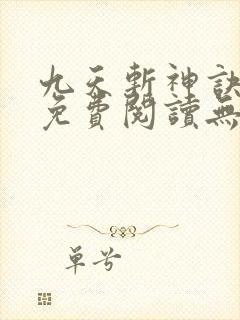 九天斬神訣
免費閱讀無
單兮